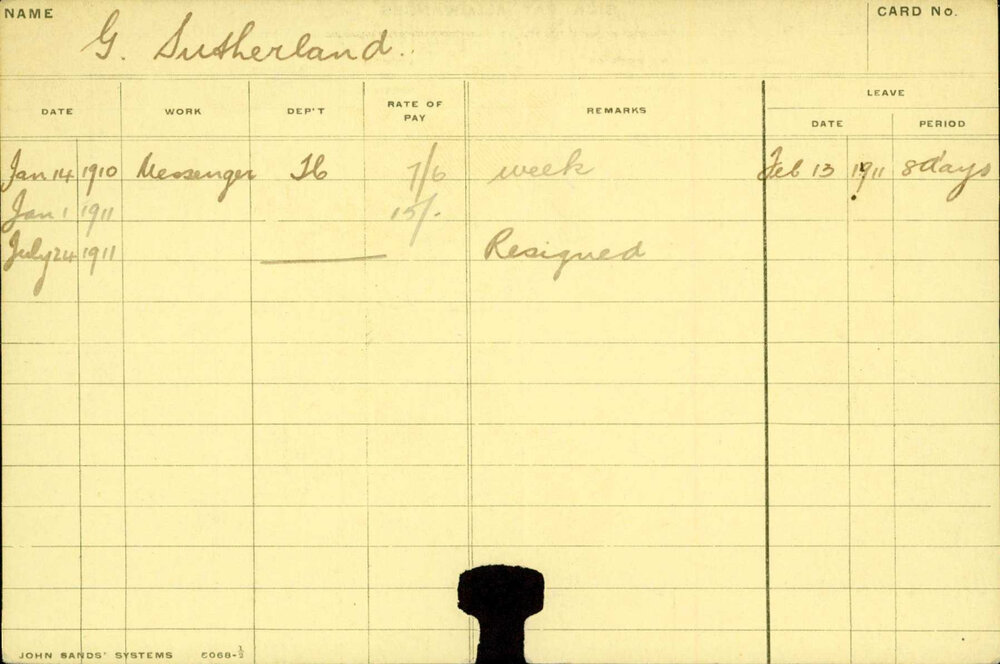 NAME
G. Sutherland.
CARD No.
DATE WORK DEP'T RATE OF PAY REMARKS LEAVE
DATE PERIOD
Jan 14 1910 Messenger 7/6 week Feb 13 1911 8 days
Jan 1 1911 15/-
July 24 1911 Resigned
JOHN SANDS' SYSTEMS 6068-½